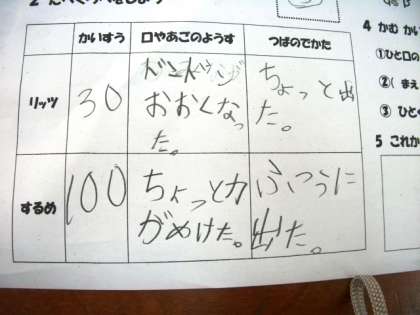 2
かいすう 口やあごのようす つばのでかた
リッツ 30
おおくなっ
た。
ちょっと出
た。
するめ 100
ちょっと力
がぬけた。
ふつうに
出た。
4 かむ かい
①ひと口の
②( まえ
③ ひと
5 これか